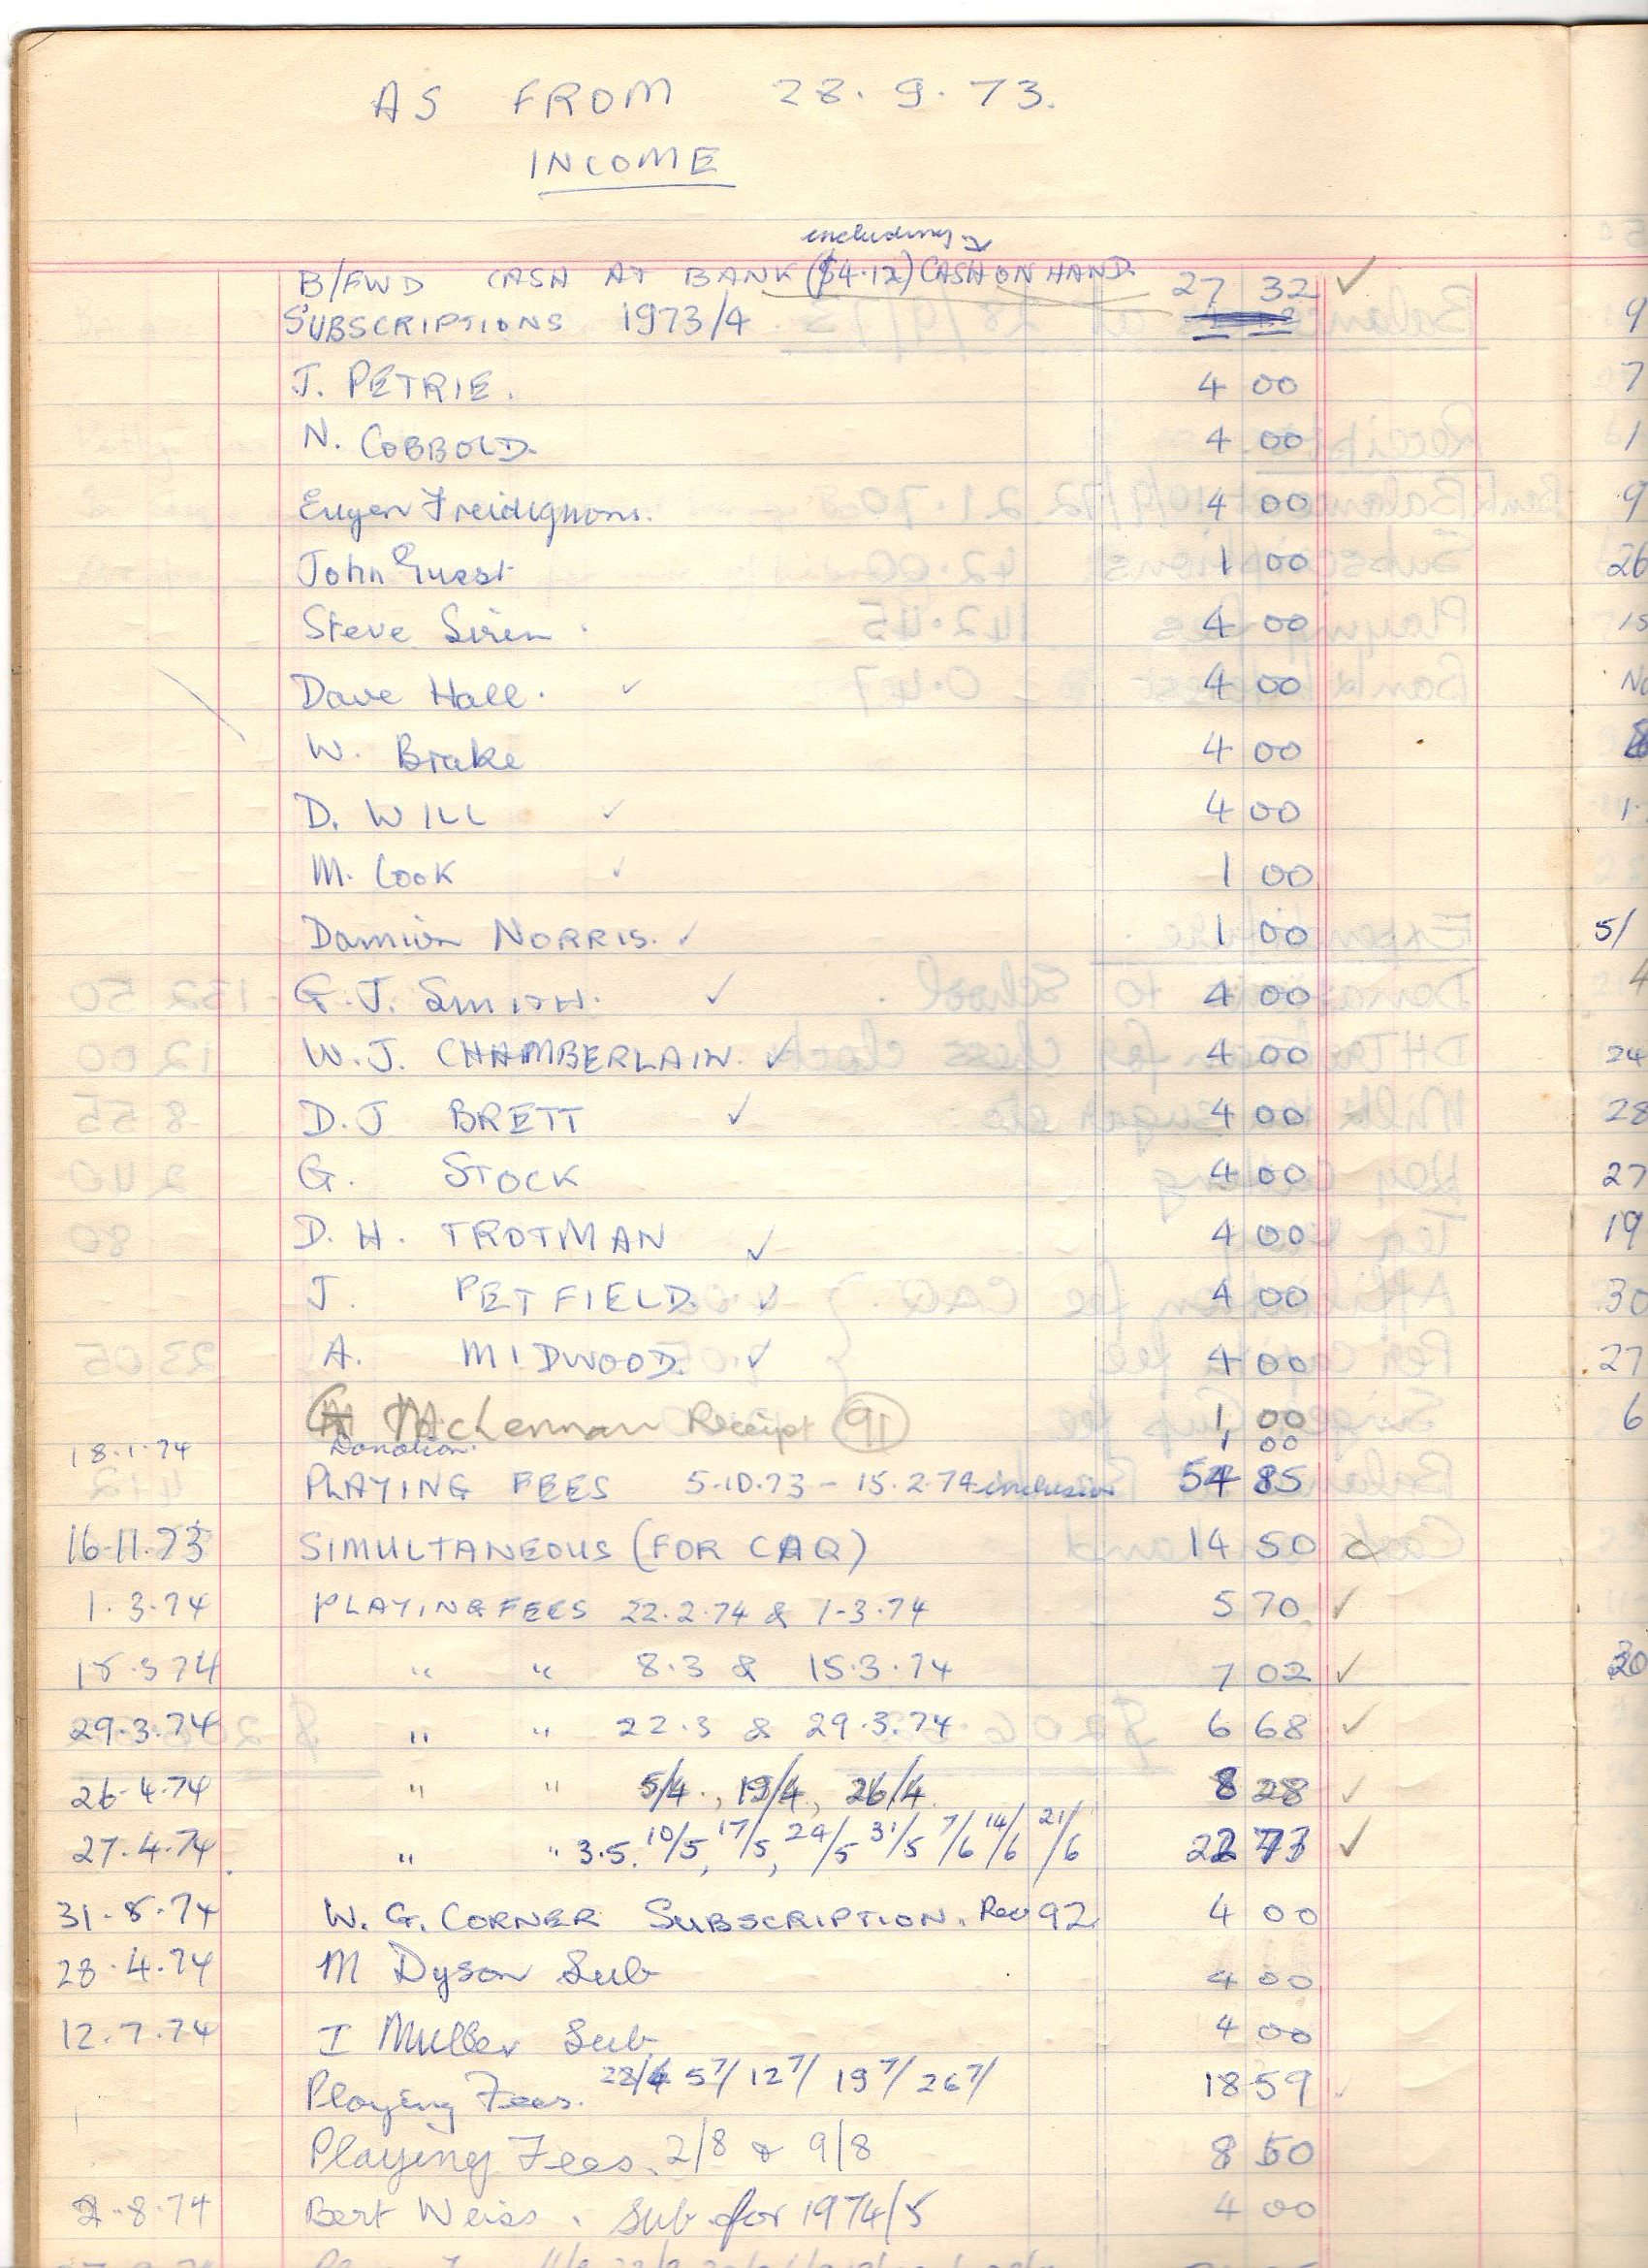 AS FROM 28.9.73.
INCOME
including
B/FWD CASH AT BANK ($4.12) CASH ON HAND 27 32 ✓
SUBSCRIPTIONS 1973/4
J. PETRIE. 4 00
N. COBBOLD. 4 00
Eugen Freidignons. 4 00
John Guest 1 00
Steve Siren 4 00
Dave Hall. ✓ 4 00
W. Brake 4 00
D. WILL ✓ 4 00
M. Cook ✓ 1 00
Damien NORRIS. ✓ 1 00
G.J. SMITH. ✓ 4 00
W.J. CHAMBERLAIN. ✓ 4 00
D.J BRETT ✓ 4 00
G. STOCK 4 00
D.H. TROTMAN ✓ 4 00
J. PETFIELD. ✓ 4 00
A. MIDWOOD. ✓ 4 00
McLennan Receipt 91 1 00
18.1.74 Donation. 1 00
PLAYING FEES 5.10.73 - 15.2.74 inclusive 54 85
16.11.73 SIMULTANEOUS (FOR CAQ) 14 50
1.3.74 PLAYING FEES 22.2.74 & 1-3.74 5 70 ✓
15.3 74 " " 8.3 & 15.3.74 7 02 ✓
29.3.74 " " 22.3 & 29.3.74 6 68 ✓
26.4.74 " " 5/4, 19/4, 26/4 8 28 ✓
27.4.74 " " 3.5. 10/5, 17/5, 24/5 31/5 7/6 14/6 21/6 22 73 ✓
31.5.74 W. G. CORNER SUBSCRIPTION. Rec 92 4 00
28.4.74 M Dyson Sub 4 00
12.7.74 I Muller Sub 4 00
Playing Fees. 28/6 5 7/ 12 7/ 19 7/ 26 7/ 18 59
Playing Fees. 2/8 & 9/8 8 50
2.8.74 Bert Weiss. Sub for 1974/5 4 00